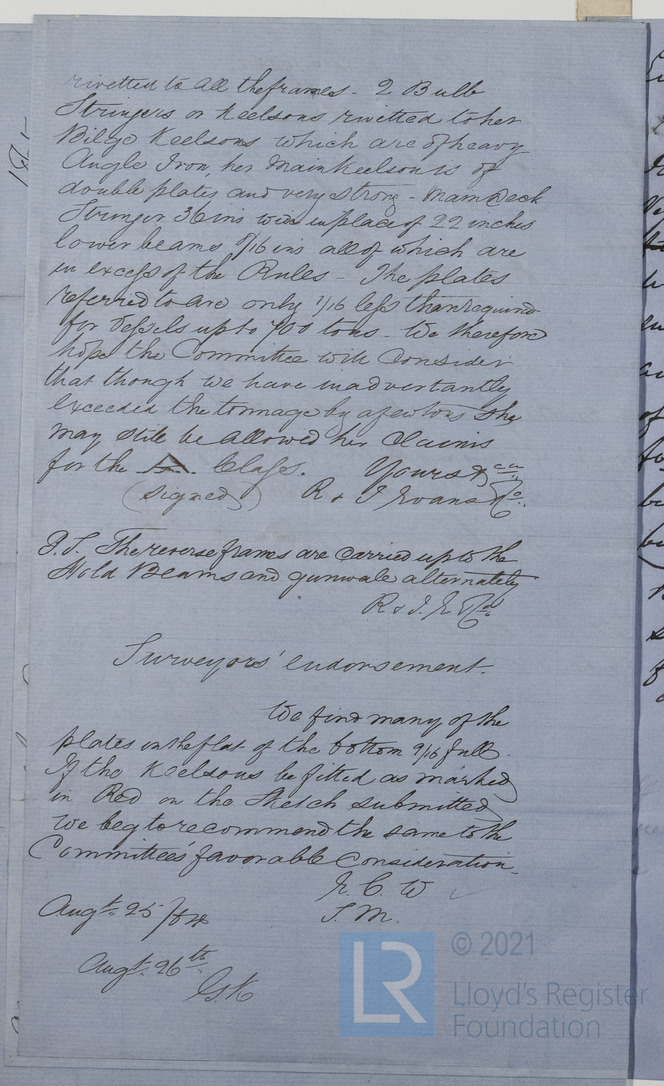 rivetted to all the frames - 2 Bulb
Stringers or Keelsons rivetted to her
Bilge Keelsons which are of heavy
Angle Iron, her Main Keelson is of
double plates and very strong - Main Deck
Stringer 36 ins wide in place of 22 inches
lower beams 9/16 ins all of which are
in excess of the Rules - The plates
referred to are only 1/16 less than required
for Vessels up to 700 tons - We therefore
hope the Committee will Consider
that though we have inadvertantly
exceeded the tonnage by a few tons she
may still be allowed her Claims
for the A. Class. Yours &c
(signed) R & J Evans & Co.
P.S. The reverse frames are carried up to the
Hold Beams and gunwale alternately
R & J. E & Co
Surveyors' endorsement.
We find many of the
plates in the flat of the bottom 9/16 full.
If the Keelsons be fitted as marked
in Red on the Sketch submitted
We beg to recommend the same to the
Committees' favorable Consideration.
S. M.
Augt. 25/64
Augt. 26th
G.K
LR
© 2021
Lloyd's Register
Foundation